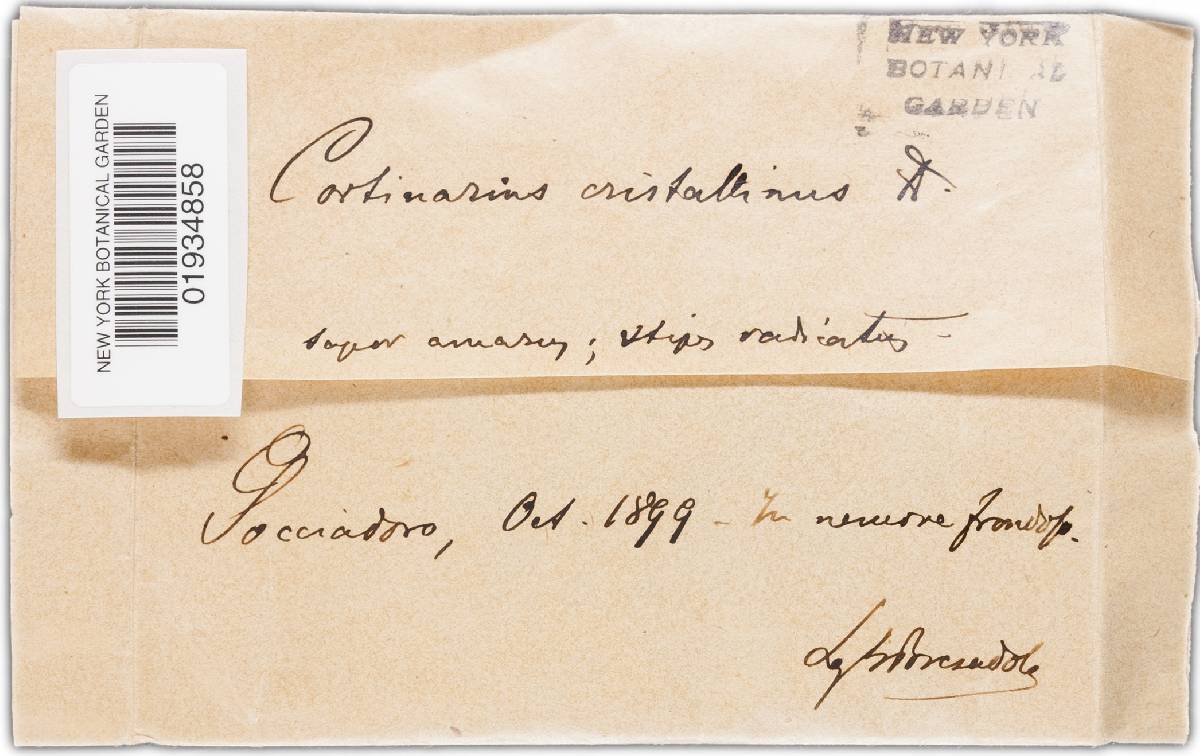 NEW YORK
BOTANICAL
GARDEN
NEW YORK BOTANICAL GARDEN
01934858
Cortinarius cristallinus Fr.
sapor amarus; stipes radicatus
Gocciadoro, Oct. 1899 - In nemore frondoso.
Bresadola